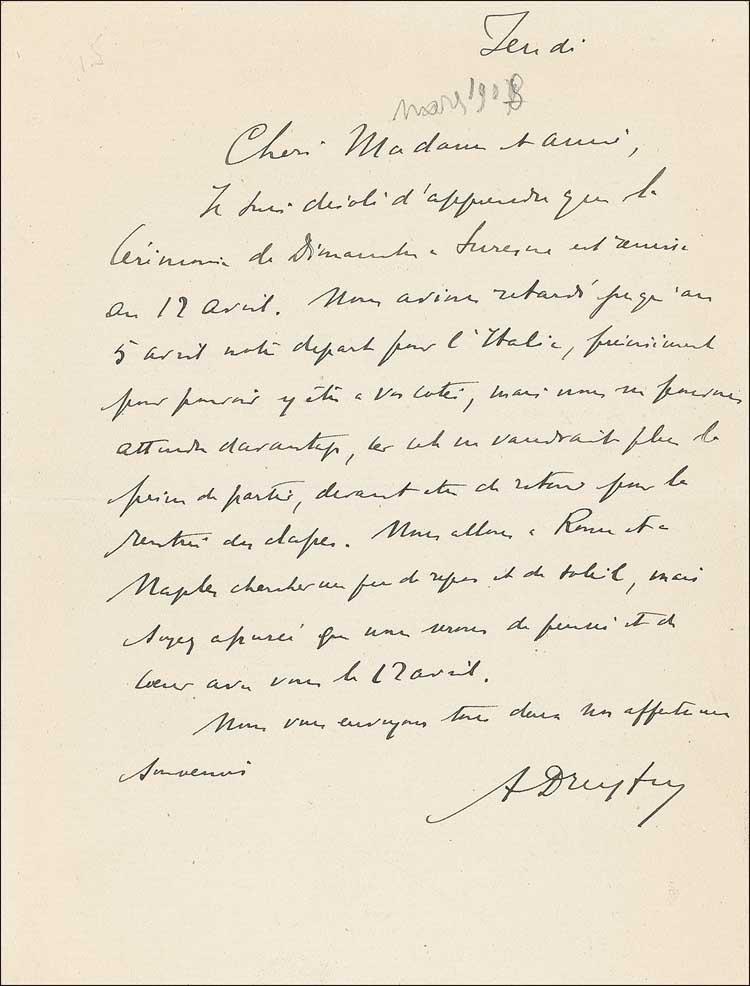 Jeudi
mars 1908
Chère Madame et amie,
Je suis désolé d'apprendre que la
Cérémonie de Dimanche à Suresne est remise
au 12 avril. Nous avions retardé jusqu'au
5 avril notre départ pour l'Italie, précisément
pour pouvoir y être à vos côtés, mais nous ne pouvons
attendre davantage, car cela ne vaudrait plus la
peine de partir, devant être de retour pour la
rentrée des classes. Nous allons à Rome et à
Naples chercher un peu de repos et de soleil, mais
soyez assurée que nous serons de pensée et de
cœur avec vous le 12 avril.
Nous vous envoyons tous deux nos affectueux
souvenirs
A Dreyfus